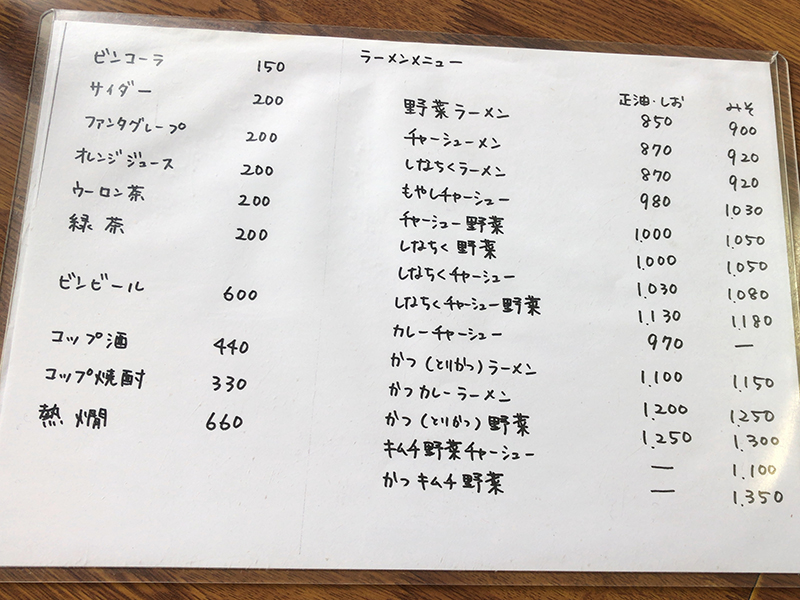 ビンコーラ 150
サイダー 200
ファンタグレープ 200
オレンジジュース 200
ウーロン茶 200
緑茶 200
ビンビール 600
コップ酒 440
コップ焼酎 330
熱燗 660
ラーメンメニュー
正油・しお みそ
野菜ラーメン 850 900
チャーシューメン 870 920
しなちくラーメン 870 920
もやしチャーシュー 980 1.030
チャーシュー野菜 1.000 1.050
しなちく野菜 1.000 1.050
しなちくチャーシュー 1.030 1.080
しなちくチャーシュー野菜 1.130 1.180
カレーチャーシュー 970 —
かつ(とりかつ)ラーメン 1.100 1.150
かつカレーラーメン 1.200 1.250
かつ(とりかつ)野菜 1.250 1.300
キムチ野菜チャーシュー — 1.100
かつキムチ野菜 — 1.350